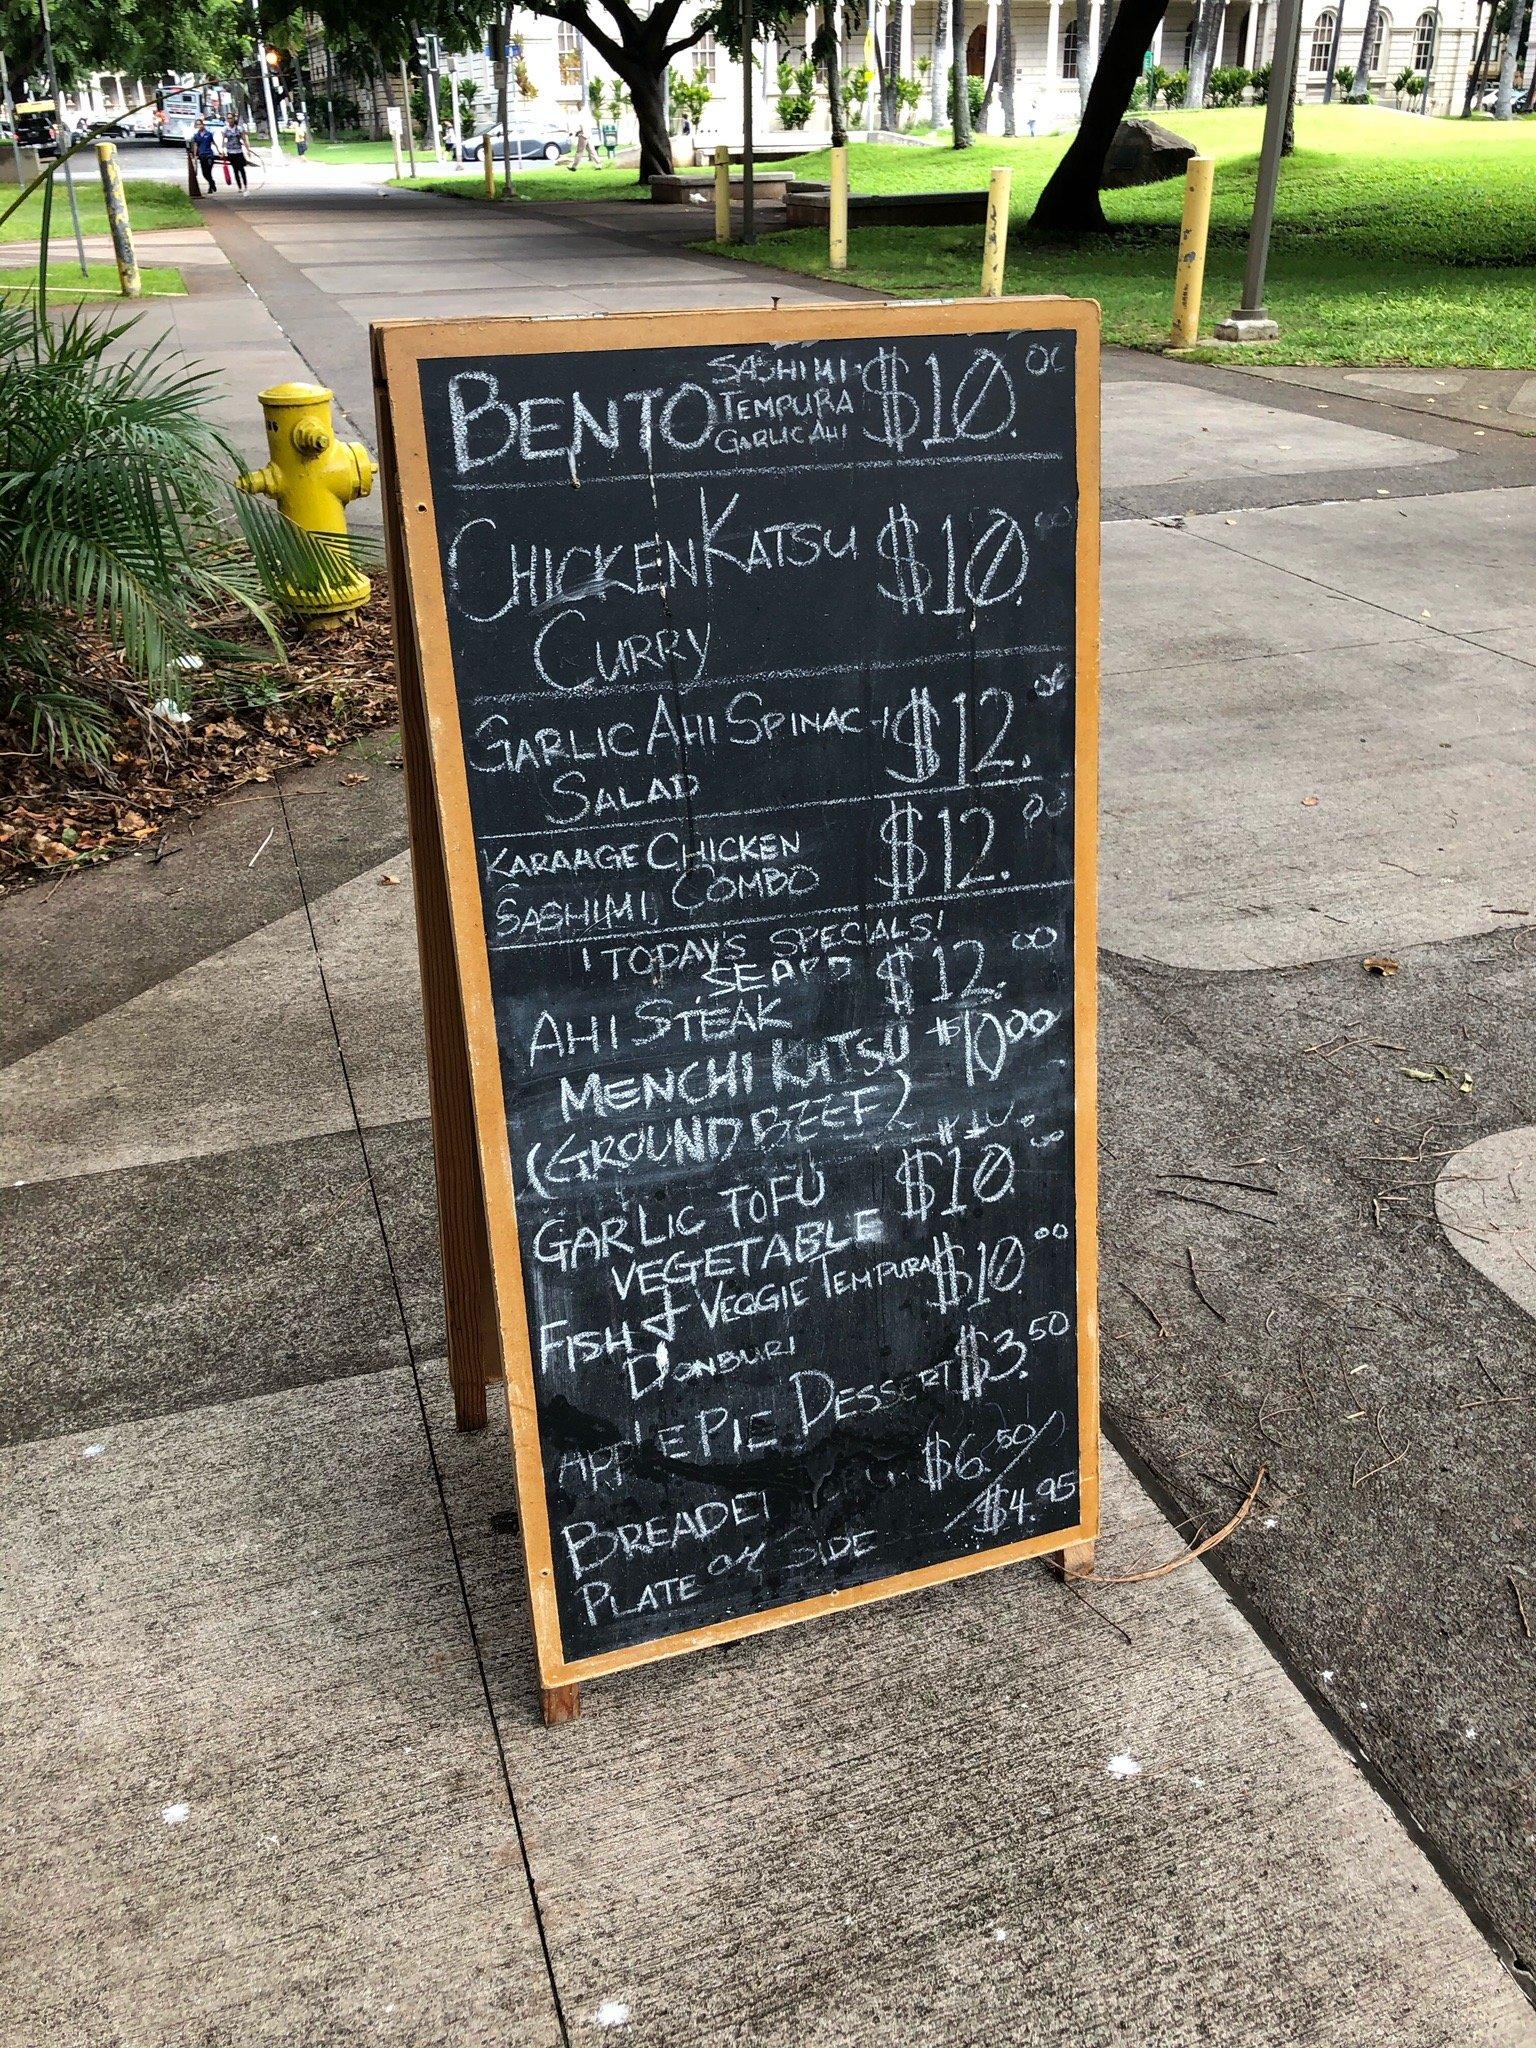 BENTO SASHIMI TEMPURA GARLIC AHI $10.00
CHICKEN KATSU $10.00
CURRY
GARLIC AHI SPINACH $12.00
SALAD
KARAAGE CHICKEN $12.00
SASHIMI COMBO
! TODAY'S SPECIALS!
SEARED $12.00
AHI STEAK
MENCHI KATSU $10.00
(GROUND BEEF)
GARLIC TOFU $10.00
VEGETABLE
FISH & VEGGIE TEMPURA $10.00
DONBURI
APPLE PIE DESSERT $3.50
BREADED $6.50/
PLATE or SIDE $4.95